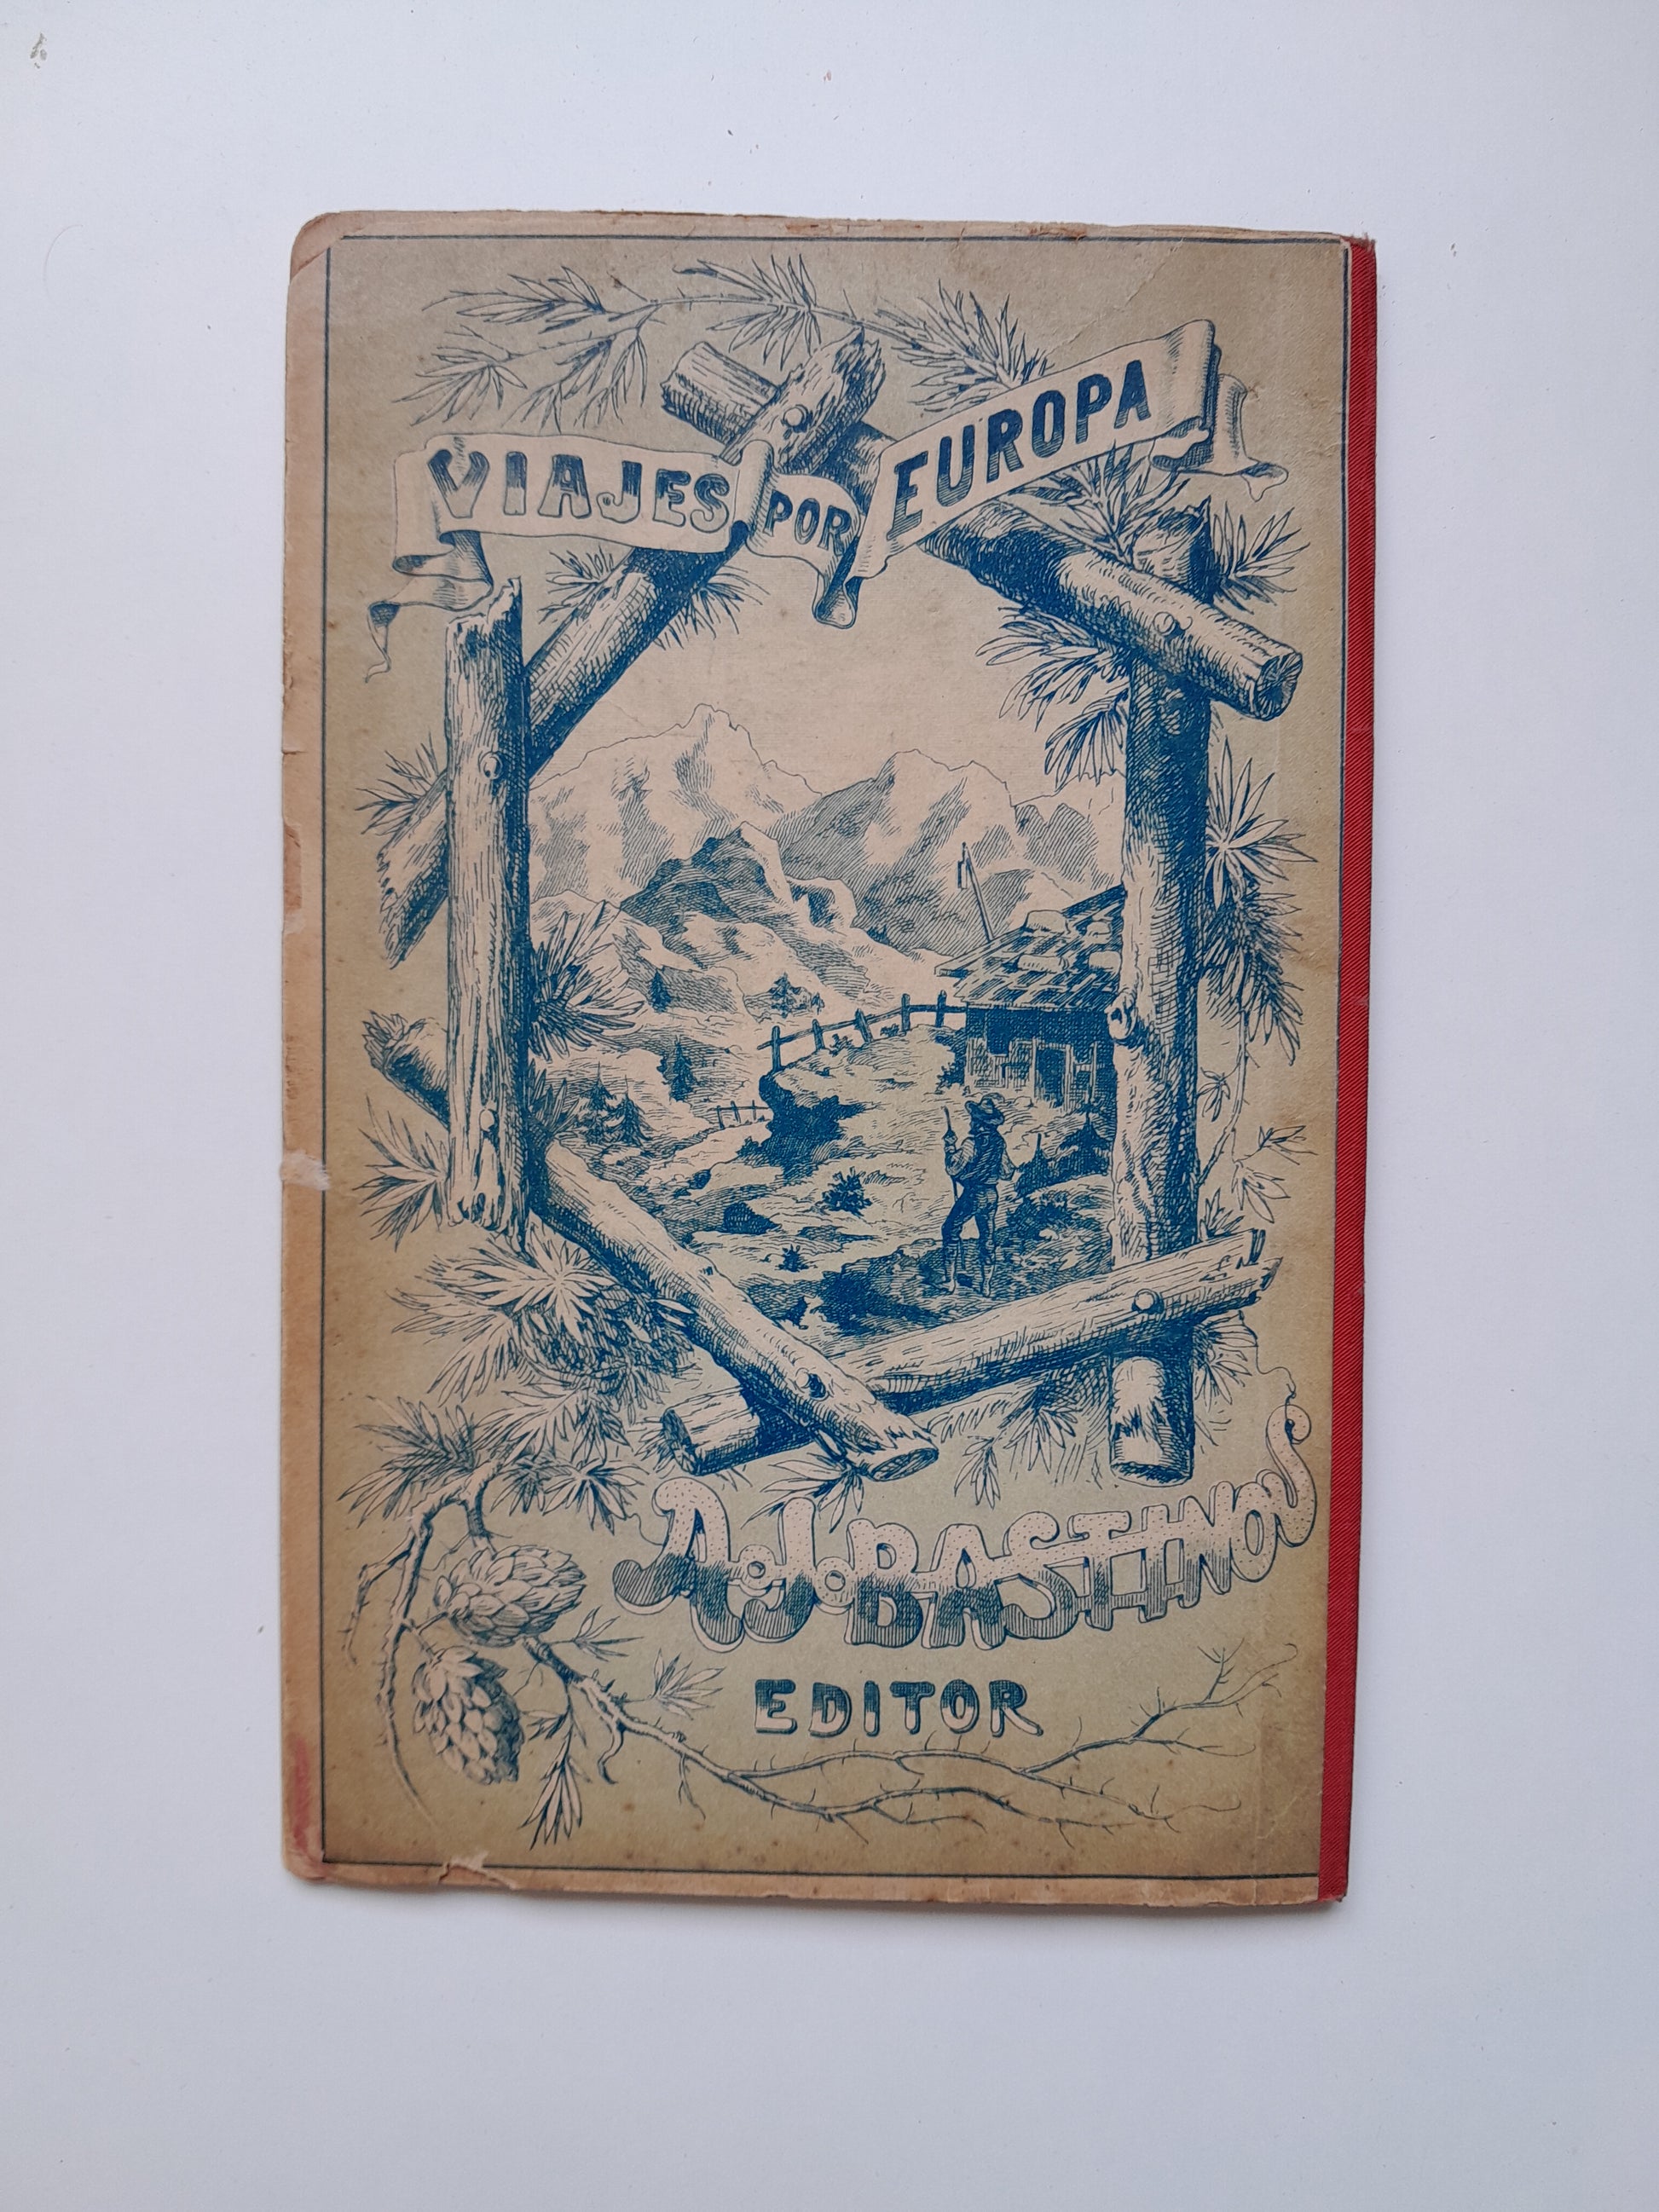 VIAJES POR EUROPA
A. J. BASTINOS
EDITOR